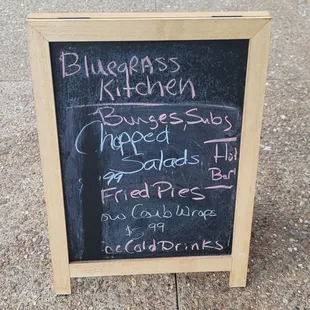 BluegRASS
Kitchen
Burges, Subs
Chopped
Salads
.99
Hot
Bar
FRied Pies
Low Carb Wraps
$ .99
Ice Cold Drinks!